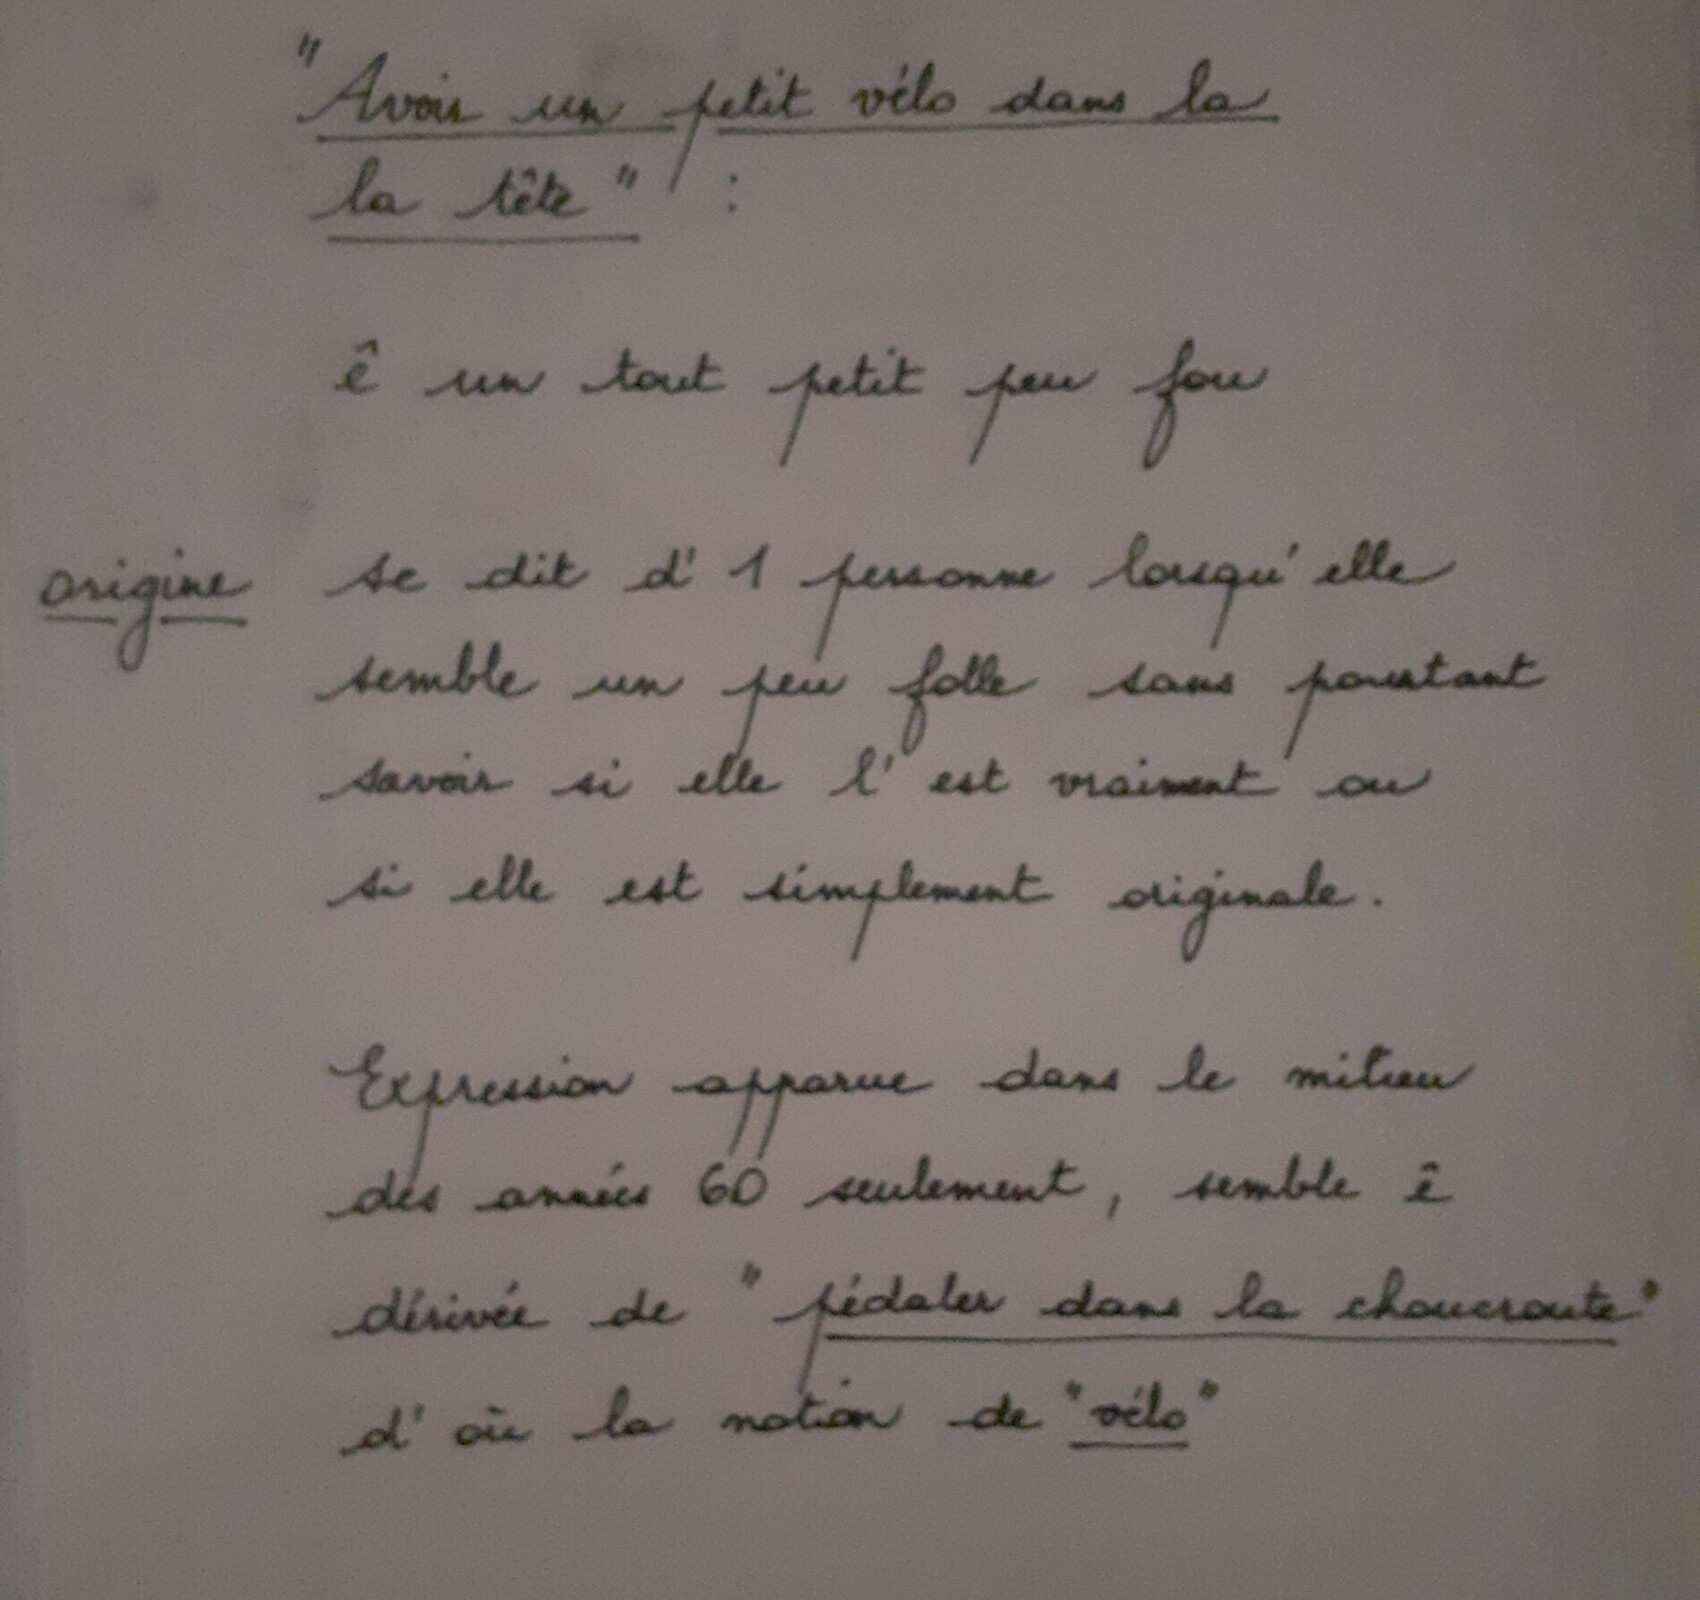 "Avoir un petit vélo dans la
la tête" :
ê un tout petit peu fou
origine se dit d'1 personne lorsqu'elle
semble un peu folle sans pourtant
savoir si elle l'est vraiment ou
si elle est simplement originale.
Expression apparue dans le milieu
des années 60 seulement, semble ê
dérivée de "pédaler dans la choucroute"
d'où la notion de "vélo"